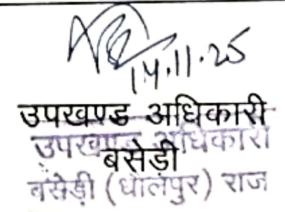 14.11.25
उपखण्ड अधिकारी
उपखण्ड अधिकारी
बसेड़ी
बसेड़ी (धौलपुर) राज